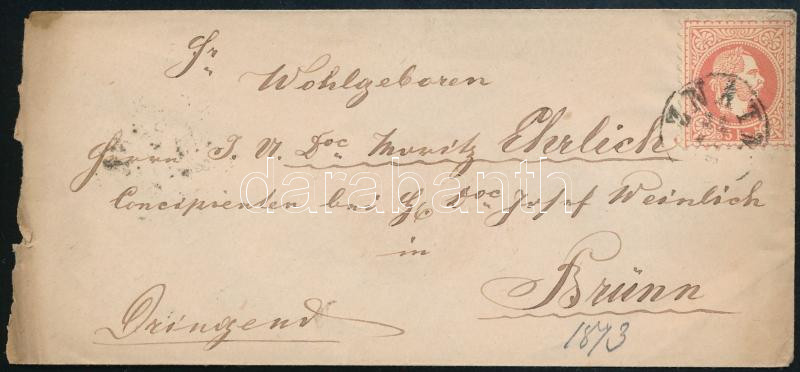 Sr
Wohlgeboren
Herrn J. U. Doc Moritz Ehrlich
Concipienten bei H Doc Josef Weinlich
in
Brünn
Dringend
1873
ZNAIM
darabanth